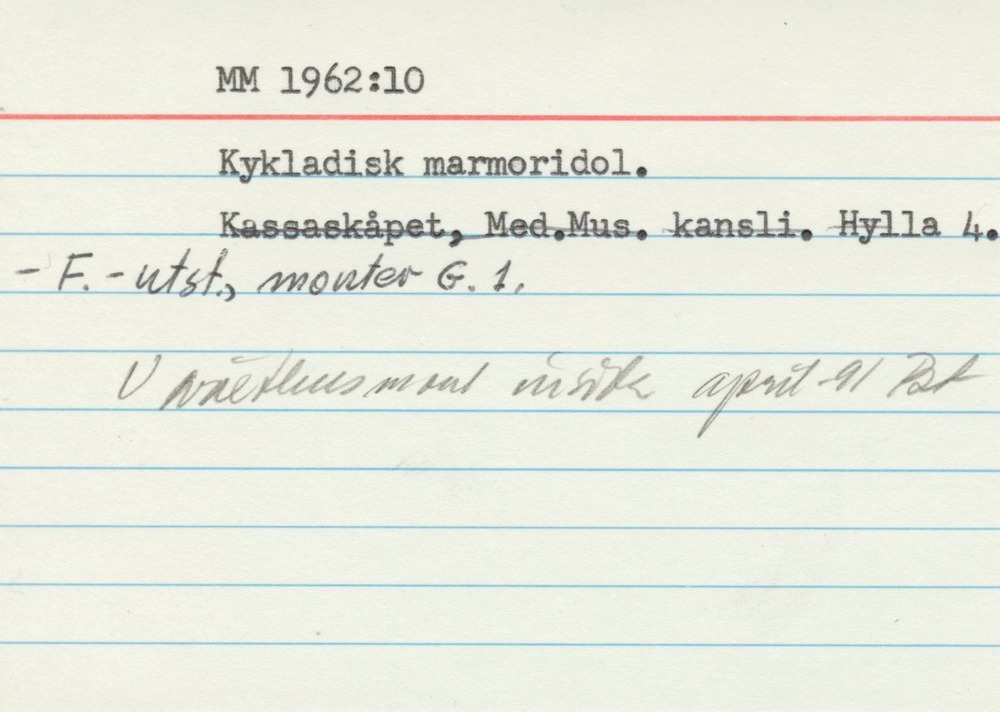 MM 1962:10
Kykladisk marmoridol.
Kassaskåpet, Med.Mus. kansli. Hylla 4.
- F. - utst., monter G. 1.
april -91